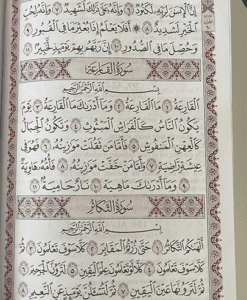 إِنَّ الْإِنسَانَ لِرَبِّهِ لَكَنُودٌ ٦ وَإِنَّهُ عَلَىٰ ذَٰلِكَ لَشَهِيدٌ ٧ وَإِنَّهُ لِحُبِّ
الْخَيْرِ لَشَدِيدٌ ٨ أَفَلَا يَعْلَمُ إِذَا بُعْثِرَ مَا فِي الْقُبُورِ ٩
وَحُصِّلَ مَا فِي الصُّدُورِ ١٠ إِنَّ رَبَّهُم بِهِمْ يَوْمَئِذٍ لَّخَبِيرٌ ١١
سُورَةُ القَارِعَةِ
بِسْمِ اللَّهِ الرَّحْمَٰنِ الرَّحِيمِ
الْقَارِعَةُ ١ مَا الْقَارِعَةُ ٢ وَمَا أَدْرَاكَ مَا الْقَارِعَةُ ٣ يَوْمَ
يَكُونُ النَّاسُ كَالْفَرَاشِ الْمَبْثُوثِ ٤ وَتَكُونُ الْجِبَالُ
كَالْعِهْنِ الْمَنفُوشِ ٥ فَأَمَّا مَن ثَقُلَتْ مَوَازِينُهُ ٦ فَهُوَ فِي
عِيشَةٍ رَّاضِيَةٍ ٧ وَأَمَّا مَنْ خَفَّتْ مَوَازِينُهُ ٨ فَأُمُّهُ هَاوِيَةٌ
٩ وَمَا أَدْرَاكَ مَا هِيَهْ ١٠ نَارٌ حَامِيَةٌ ١١
سُورَةُ التَّكَاثُرِ
بِسْمِ اللَّهِ الرَّحْمَٰنِ الرَّحِيمِ
أَلْهَاكُمُ التَّكَاثُرُ ١ حَتَّىٰ زُرْتُمُ الْمَقَابِرَ ٢ كَلَّا سَوْفَ تَعْلَمُونَ ٣ ثُمَّ
كَلَّا سَوْفَ تَعْلَمُونَ ٤ كَلَّا لَوْ تَعْلَمُونَ عِلْمَ الْيَقِينِ ٥ لَتَرَوُنَّ الْجَحِيمَ ٦
ثُمَّ لَتَرَوُنَّهَا عَيْنَ الْيَقِينِ ٧ ثُمَّ لَتُسْأَلُنَّ يَوْمَئِذٍ عَنِ النَّعِيمِ ٨